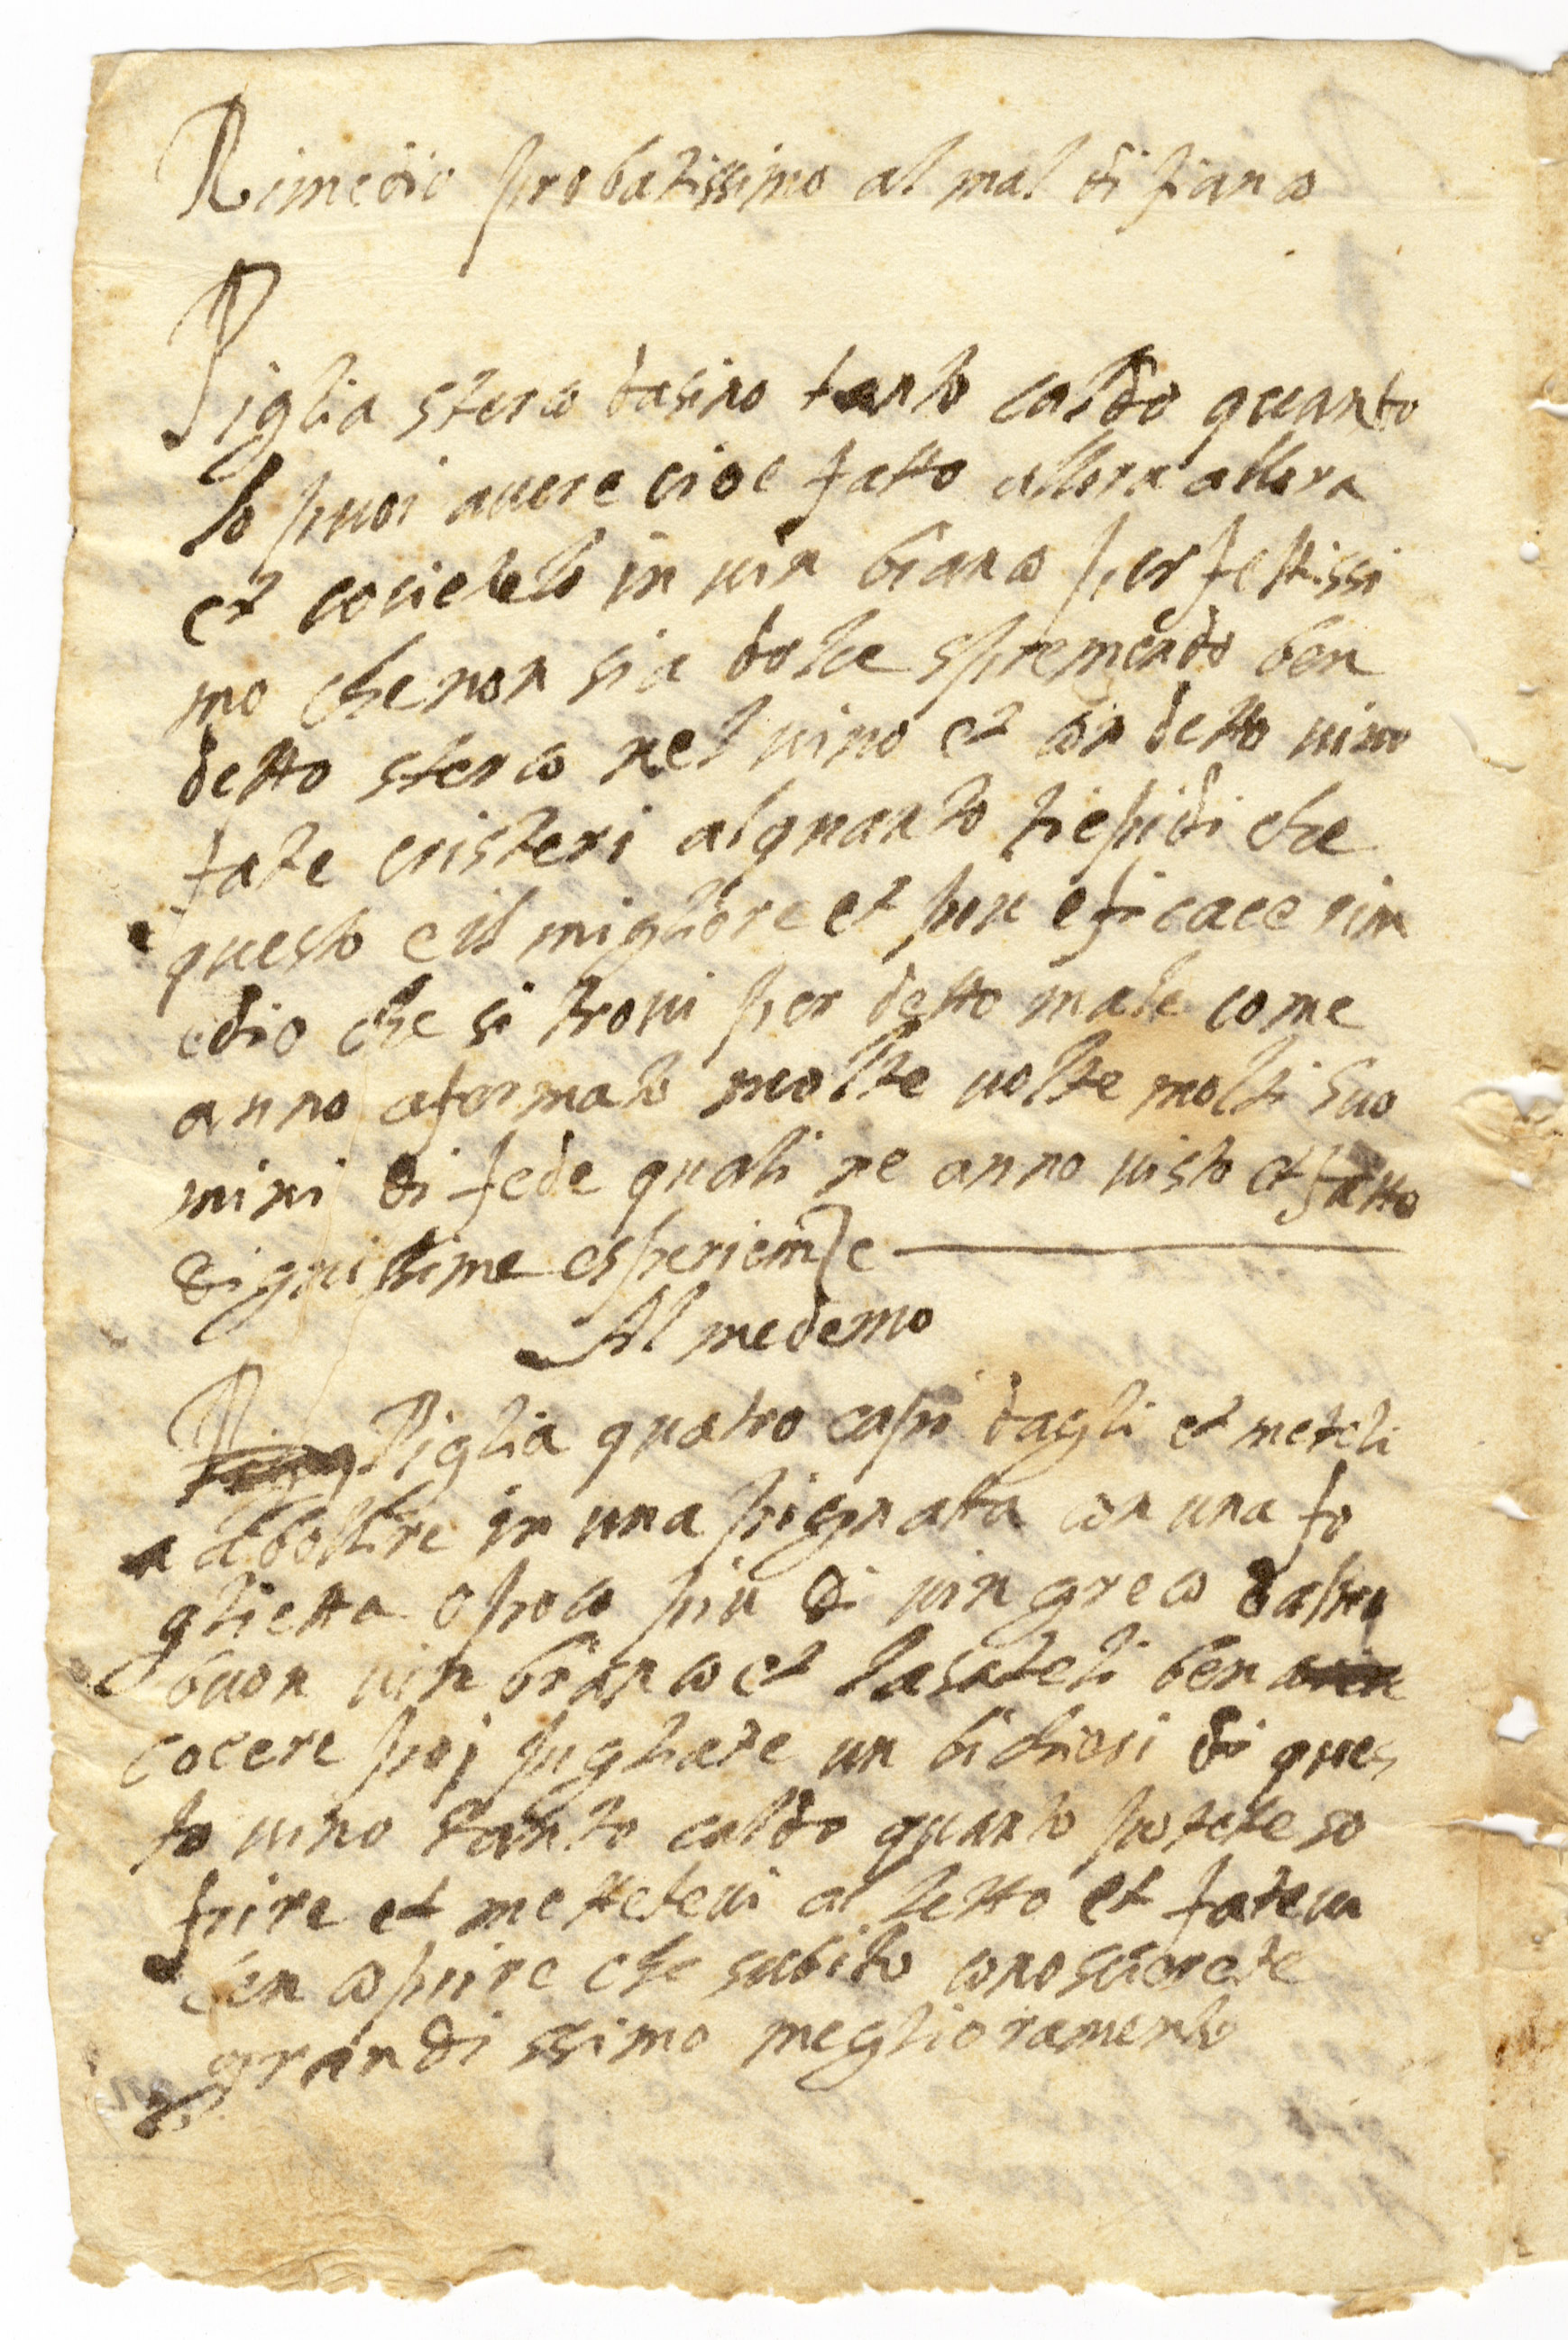 Rimedio probatissimo al mal di fianco
Piglia sterco dasino tanto caldo quanto
lo puoi auere cioe fatto allora allora
et cocietelo in uin bianco perfettissi
mo che non sia dolce spremendo ben
detto sterco nel uino et con detto uino
fate cristeri alquanto tiepidi che
questo e il migliore et piu eficace rim
edio che si troui per detto male come
anno afermato molte uolte molti huo
mini di fede quali ne anno uisto et fatto
dignissime esperienze
Al medemo
Piglia quatro capi dagli et meteli
a bollire in una pignata con una fo
glietta o poco piu di uin greco o altro
buon uin bianco et lasateli ben
cocere poi pigliate un bichieri di ques
to uino tanto caldo quanto potete so
frire et metteteui al letto et fateui
ben coprire che subito conoscierete
grandissimo meglioramento